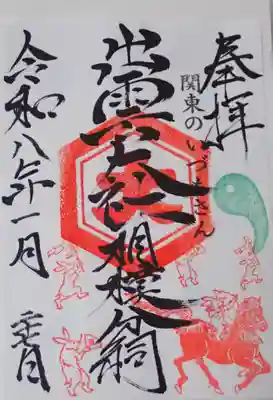 奉拝
関東のいづもさん
出雲大社相模分祠
令和八年一月